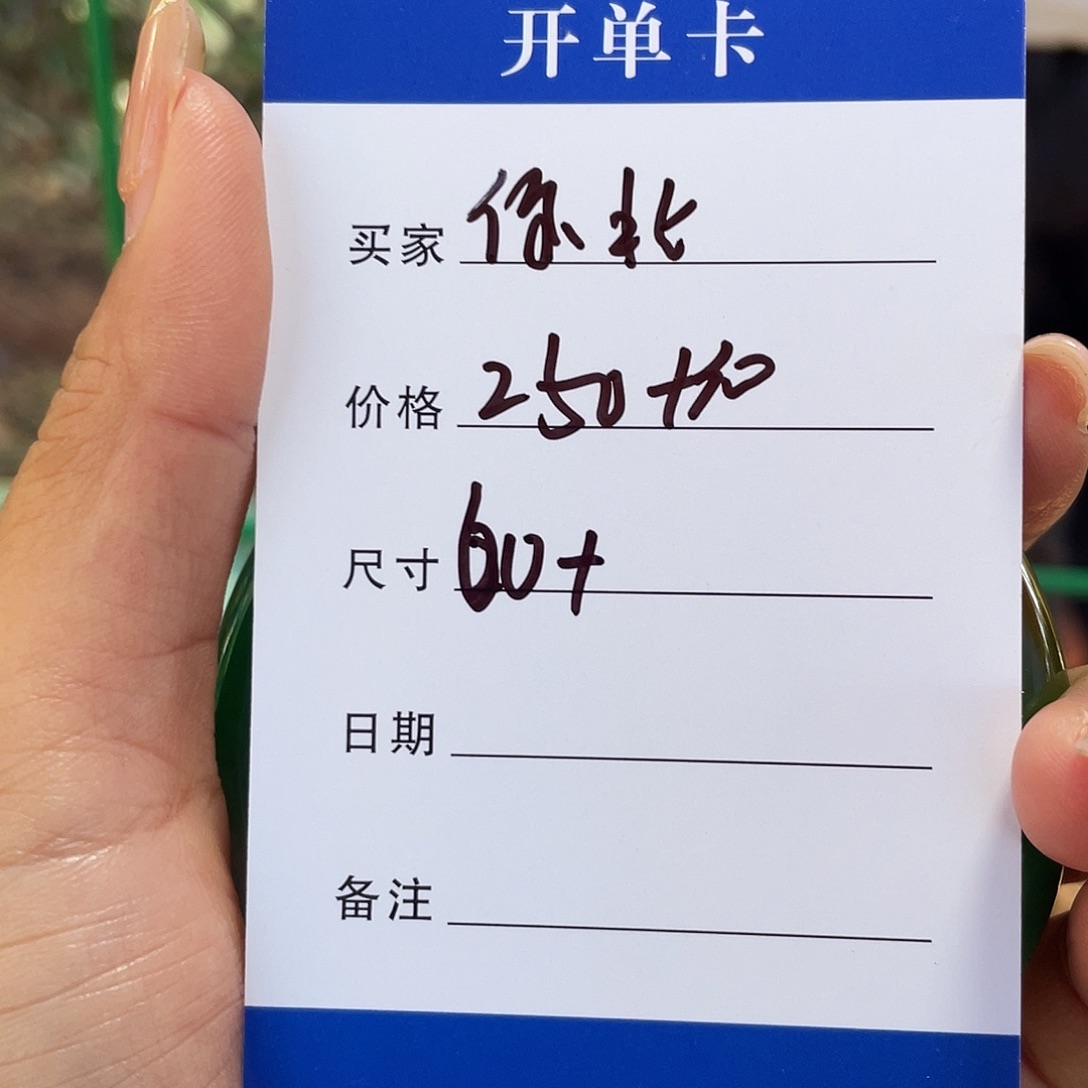 开单卡
买家
价格 250+
尺寸 60+
日期
备注